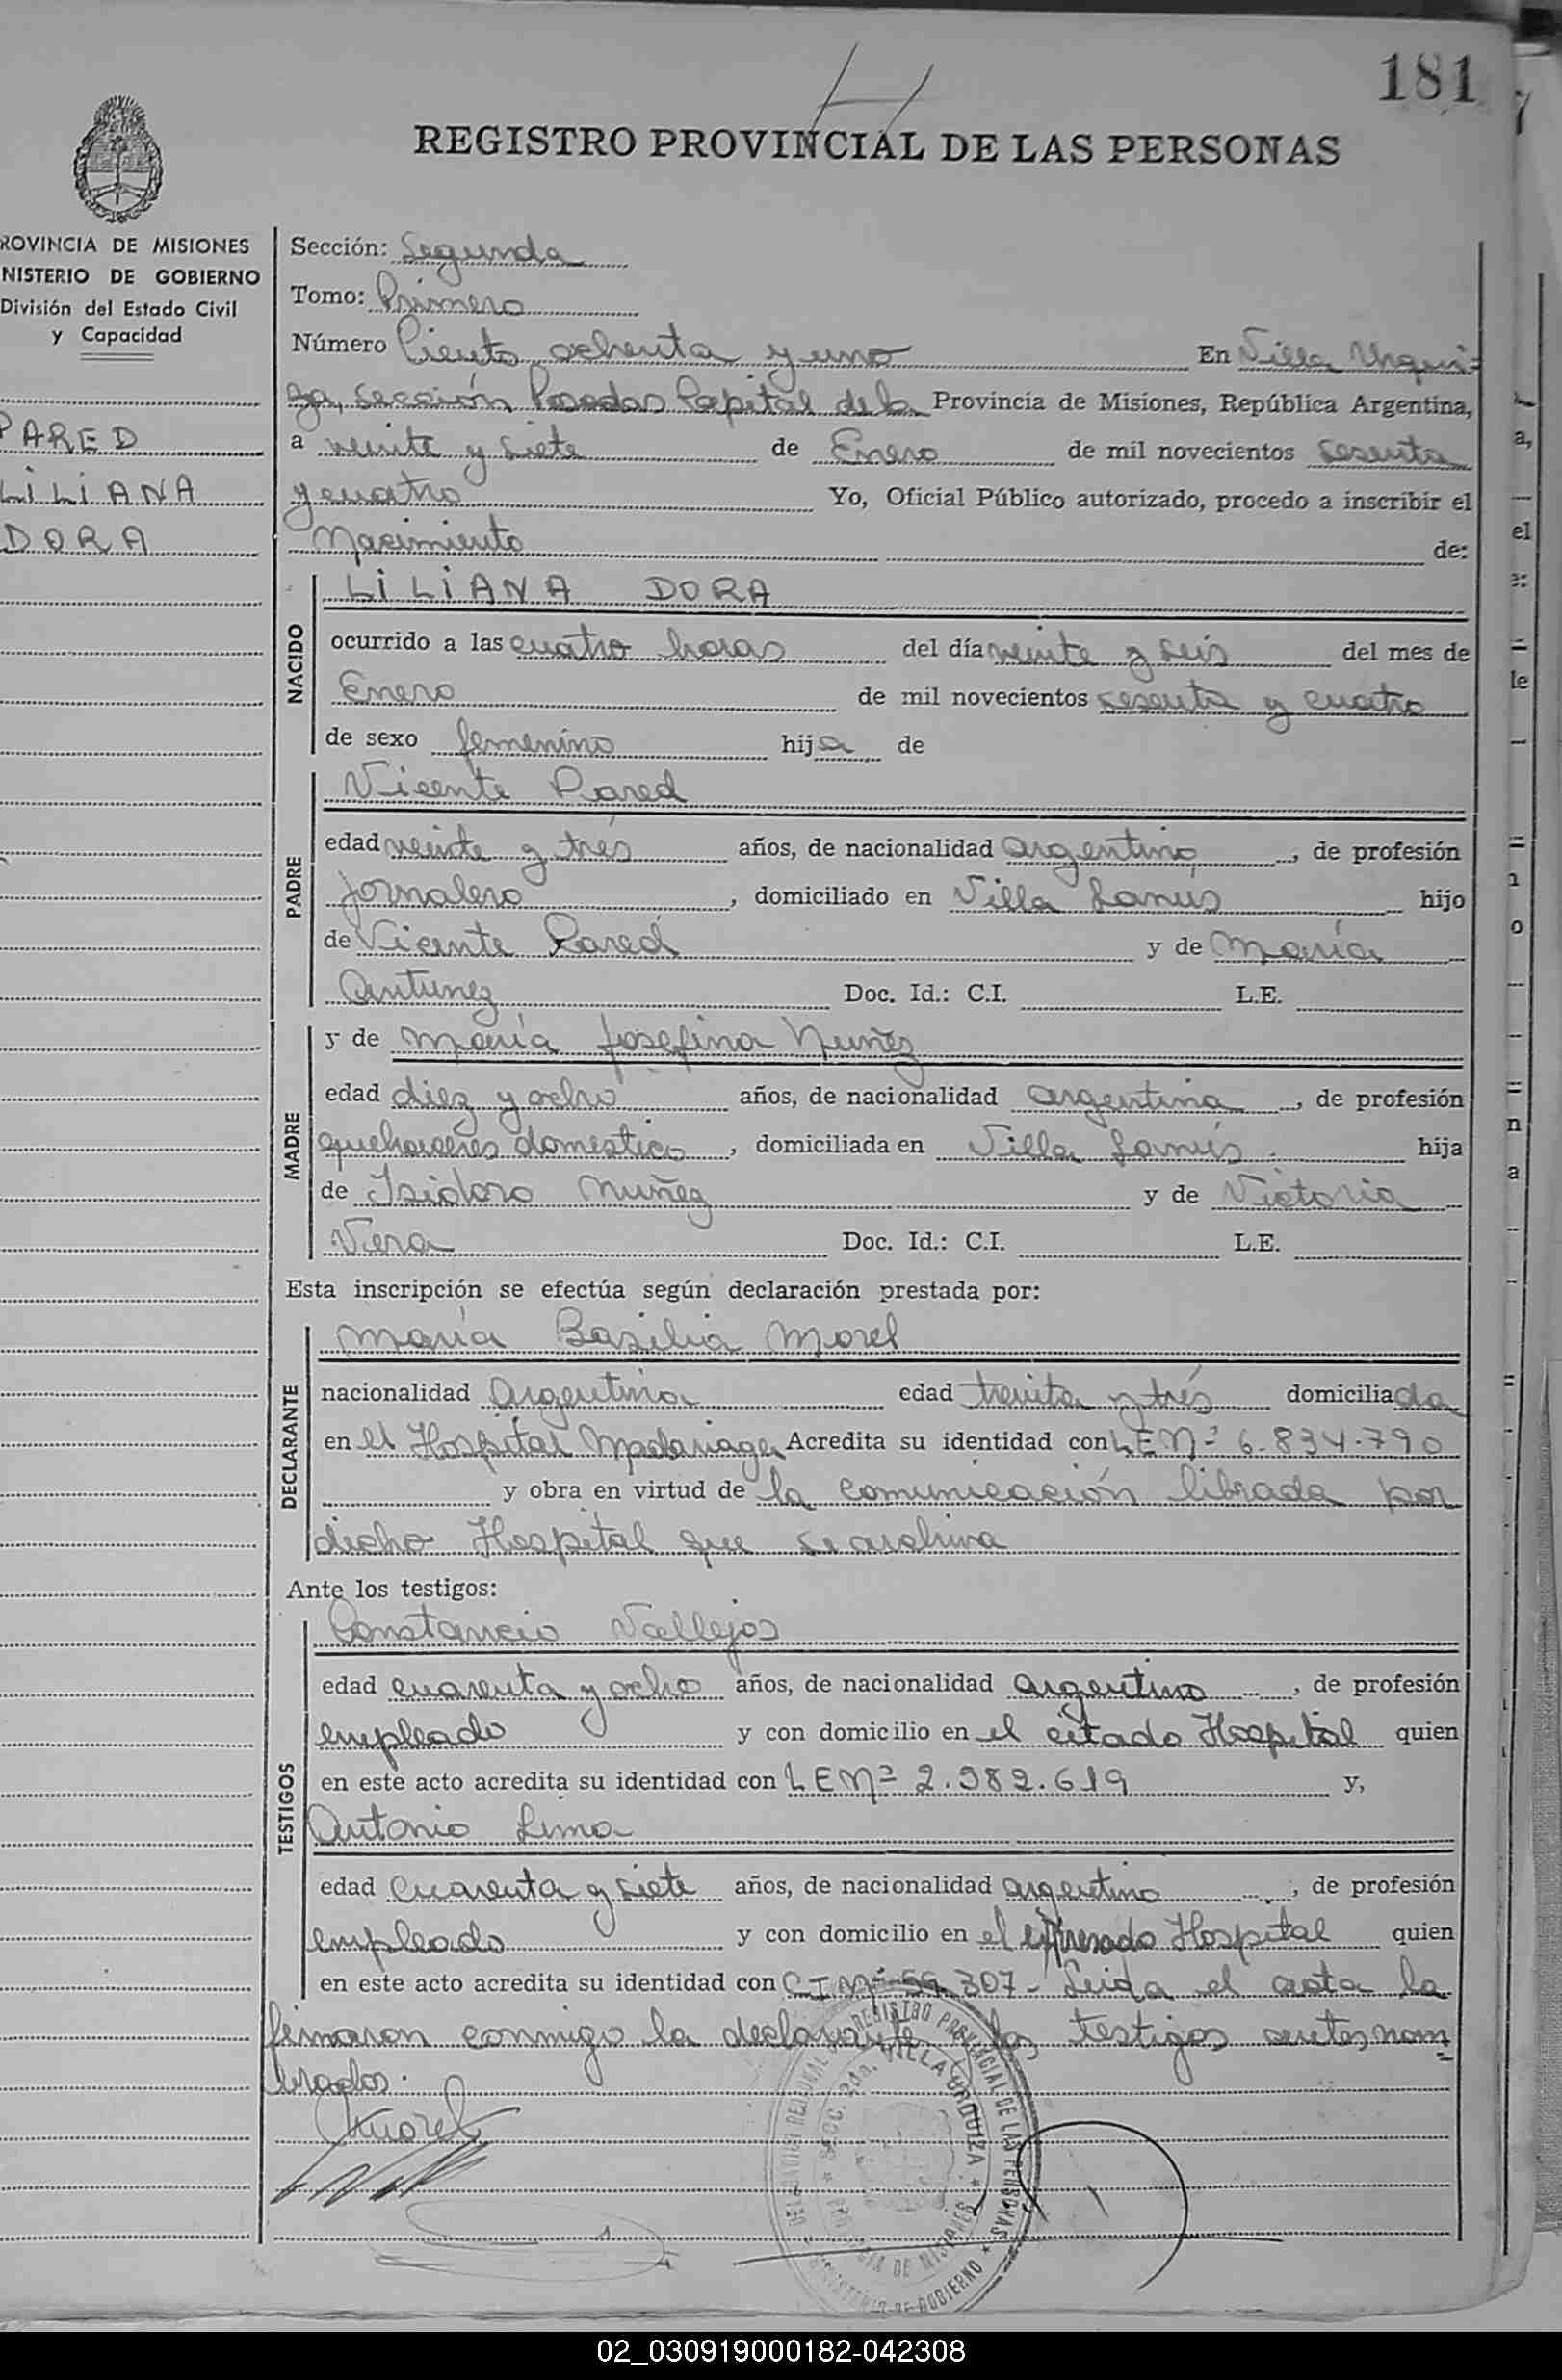 181
REGISTRO PROVINCIAL DE LAS PERSONAS
ROVINCIA DE MISIONES
NISTERIO DE GOBIERNO
División del Estado Civil
y Capacidad
PARED
LILIANA
DORA
Sección: Segunda
Tomo: Primero
Número Ciento ochenta y uno En Villa Urqui-
za, Sección Posadas Capital de la Provincia de Misiones, República Argentina,
a veinte y siete de Enero de mil novecientos sesenta
y cuatro Yo, Oficial Público autorizado, procedo a inscribir el
Nacimiento de:
NACIDO
LILIANA DORA
ocurrido a las cuatro horas del día veinte y seis del mes de
Enero de mil novecientos sesenta y cuatro
de sexo femenino hija de
PADRE
Vicente Pared
edad veinte y trés años, de nacionalidad argentino, de profesión
jornalero, domiciliado en Villa Lanús hijo
de Vicente Pared y de María
Antunez Doc. Id.: C.I. L.E.
MADRE
y de María Josefina Nuñez
edad diez y ocho años, de nacionalidad argentina, de profesión
quehaceres domestico, domiciliada en Villa Lanús. hija
de Isidoro Nuñez y de Victoria
Vera Doc. Id.: C.I. L.E.
Esta inscripción se efectúa según declaración prestada por:
DECLARANTE
María Basilia Morel
nacionalidad Argentina edad treinta y trés domiciliada
en el Hospital Madariaga Acredita su identidad con L E Nº 6.834.790
y obra en virtud de la comunicación librada por
dicho Hospital que se archiva
Ante los testigos:
TESTIGOS
Constancio Vallejos
edad cuarenta y ocho años, de nacionalidad argentino, de profesión
empleado y con domicilio en el citado Hospital quien
en este acto acredita su identidad con L E Nº 2.982.619 y,
Antonio Lima
edad cuarenta y siete años, de nacionalidad argentino, de profesión
empleado y con domicilio en el expresado Hospital quien
en este acto acredita su identidad con C I Nº 59.307 - Leida el acta la
firmaron conmigo la declarante y los testigos antes nom
brados.
Morel
DELEGACION REGIONAL DEL REGISTRO PROVINCIAL DE LAS PERSONAS
SECC. 2da. VILLA URQUIZA
PROVINCIA DE MISIONES
MINISTERIO DE GOBIERNO
02_030919000182-042308